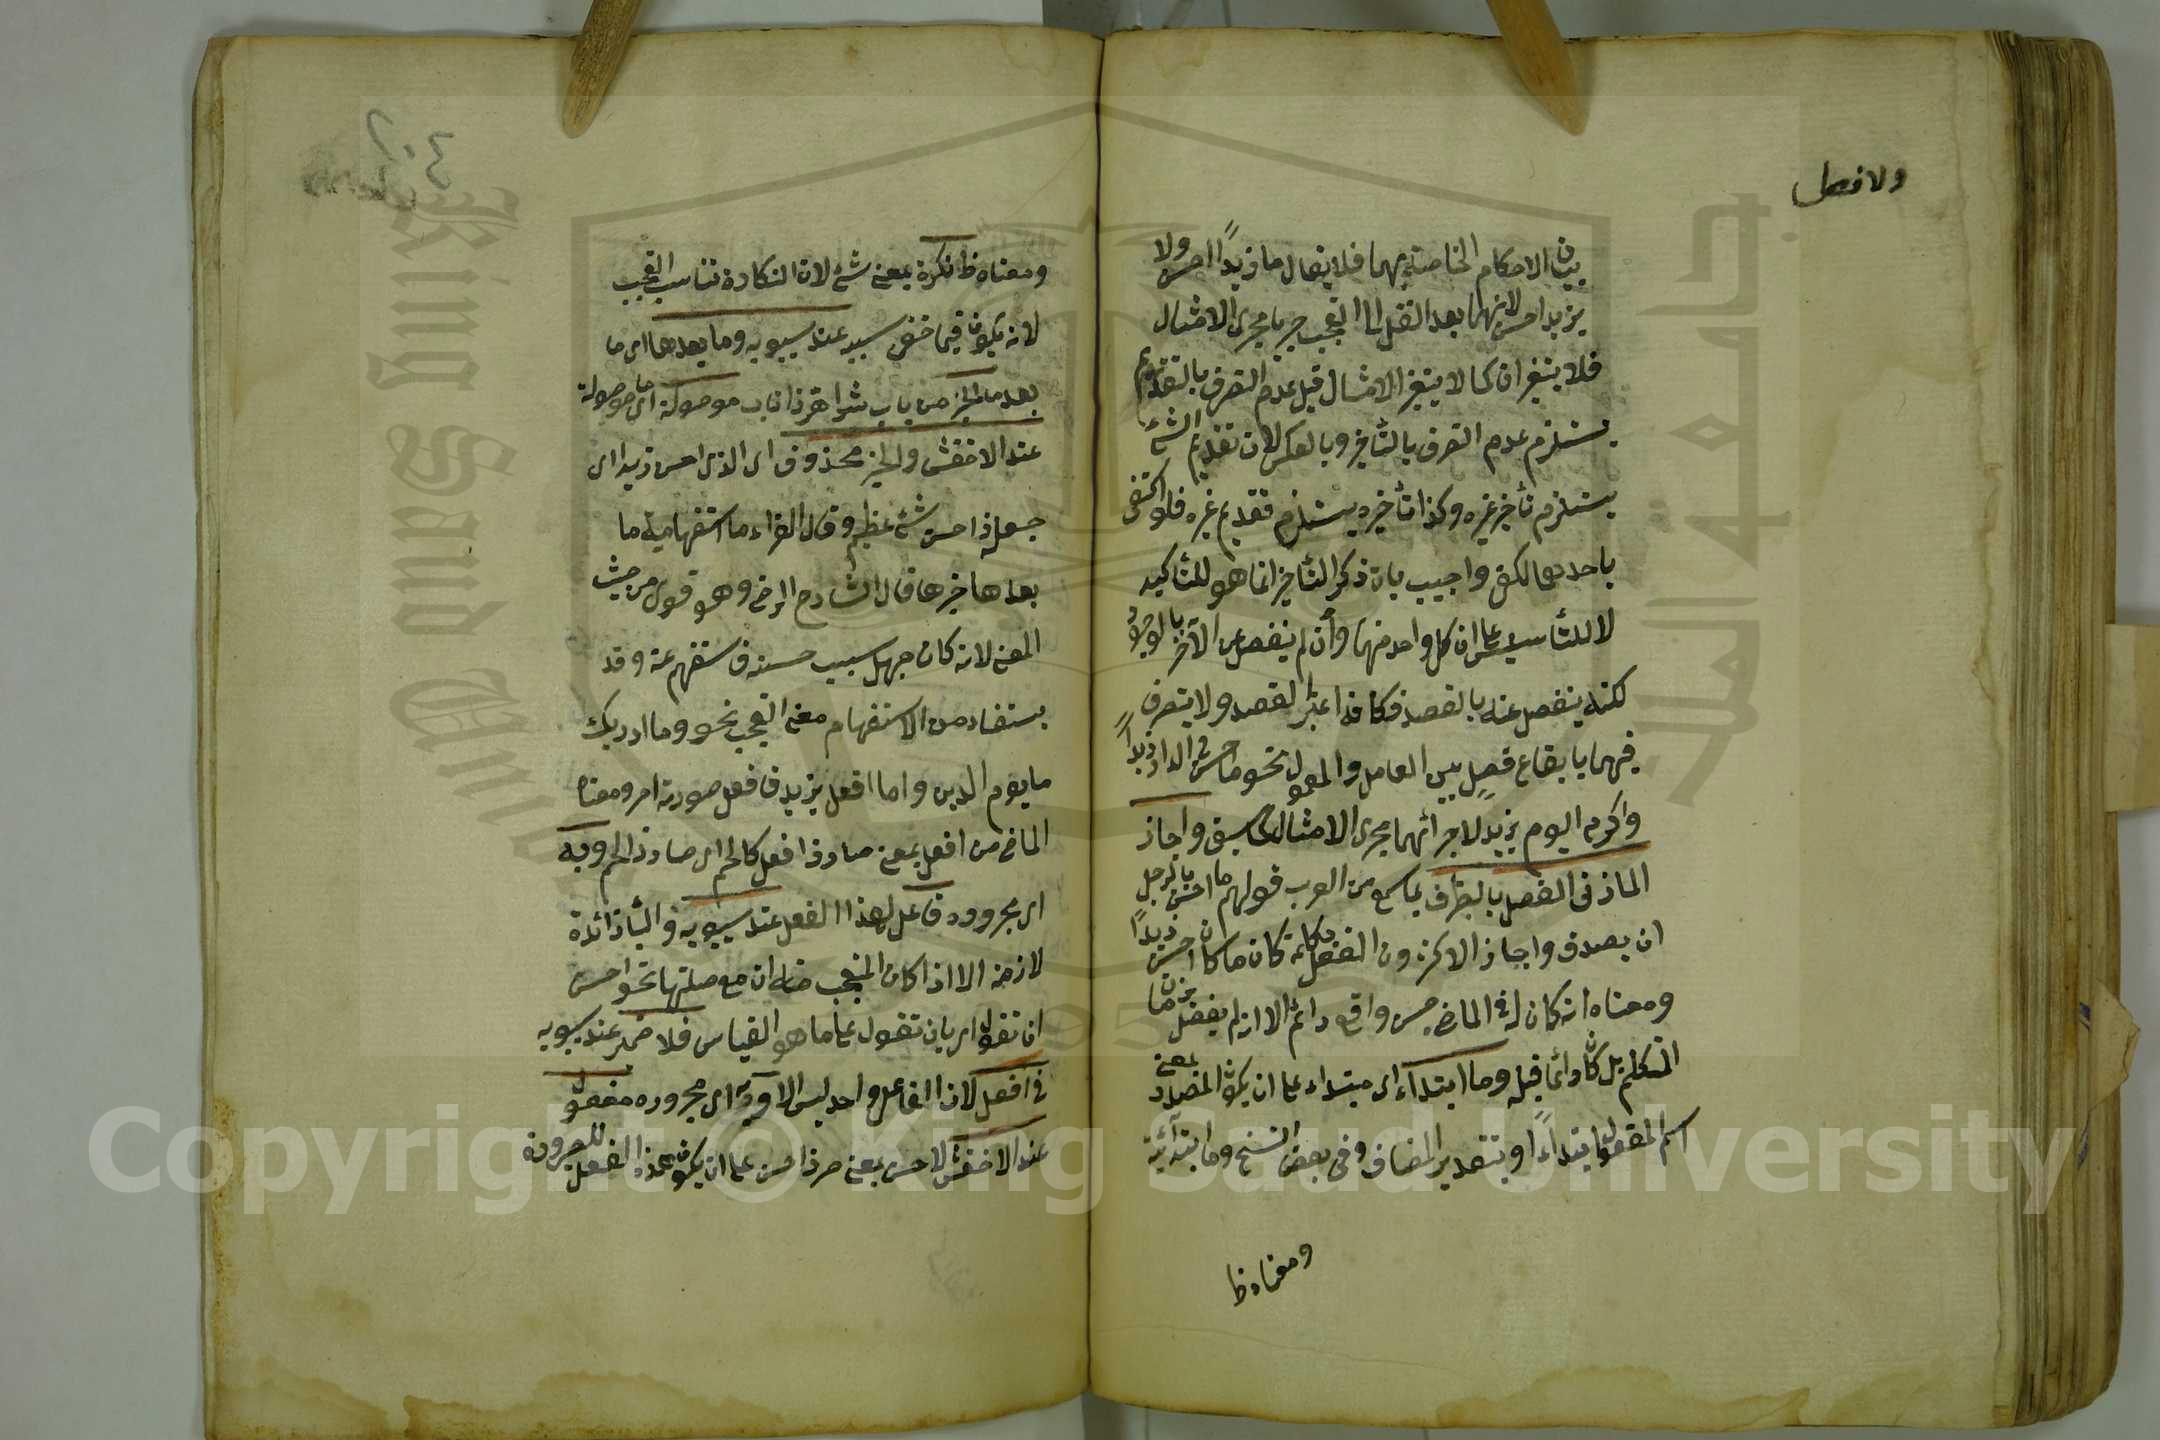 ولا فصل
بيان الاحكام الخاصة بهما فلا يقال ما زيداً احسن ولا
بزيد احسن لانهما بعد النقل الى التعجب جريا مجرى الامثال
فلا يتغيران كما لا يتغير الامثال قيل عدم التصرف بالتقديم
يستلزم عدم التصرف بالتأخير وبالعكس لان تقديم الشئ
يستلزم تأخير غيره وكذا تأخيره يستلزم تقديم غيره فلو اكتفى
باحدهما لكفى واجيب بان ذكر التأخير انما هو للتأكيد
لا للتأسيس على ان كل واحد منهما وأن لم ينفصل عن الآخر بالوجود
لكنه ينفصل عنه بالقصد فكانه اعتبر القصد ولا يتصرف
فيهما بايقاع فصل بين العامل والمعمول نحو ما احسن فى الدار زيداً
واكرم اليوم بزيد لاجرائهما مجرى الامثال كما سبق واجاز
المازنى الفصل بالظرف لما سمع من العرب قولهم ما احسن بالرجل
ان يصدق واجاز الاكثرون الفصل بكلمة كان ما كان احسن زيداً
ومعناه انه كان له فى الماضى حسن واقع دائم الا انه لم يتصل بزمان
التكلم بل كان دائما قبله وما ابتداء اى مبتداء على ان يكون المصدر بمعنى
اسم المفعول ابتداءً او بتقدير المضاف وفى بعض النسخ وما ابتدائية
ومعناه ظا
ومعناه ظ نكرة بمعنى شئ لان النكارة تناسب التعجب
لانه يكون فيما خفى سببه عند سيبويه وما بعدها اى ما
بعد ما الخبر من باب شر اهر ذا ناب موصولة اى ما موصولة
عند الاخفش والخبر محذوف اى الذى احسن زيدا اى
جعله ذا حسن شئ عظيم وقال الفراء ما استفهامية ما
بعدها خبرها قال الشارح الرضى وهو قوى من حيث
المعنى لانه كان جهل سبب حسنه فاستفهم عنه وقد
يستفاد من الاستفهام معنى التعجب نحو وما ادريك
ما يوم الدين واما افعل بزيد فافعل صورته امر ومعناه
الماضى من افعل بمعنى صار ذا فعل كالحم اى صار ذا لحم وبه
اى مجروره فاعل لهذا الفعل عند سيبويه والباء زائدة
لازمة الا اذا كان المتعجب منه ان مع صلتها نحو احسن
ان تقول اى بان تقول على ما هو القياس فلا ضمير عند سيبويه
فى افعل لان الفاعل واحد ليس الا وبه اى مجروره مفعول
عند الاخفش لاحسن بمعنى صر ذا حسن على ان يكون همزة الفعل للصيرورة
Copyright © King Saud University
King Saud University
جامعة الملك سعود